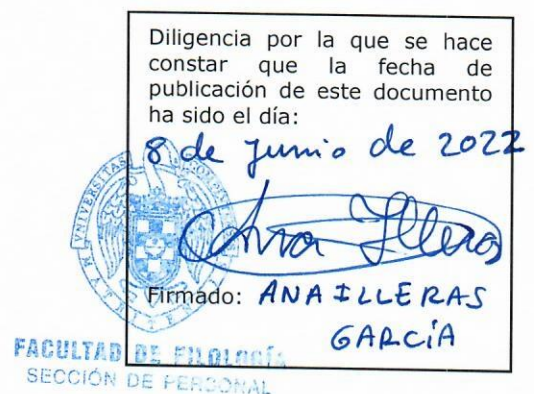 Diligencia por la que se hace
constar que la fecha de
publicación de este documento
ha sido el día:
8 de Junio de 2022
Ana Illeras
Firmado: ANA ILLERAS
GARCÍA
FACULTAD DE FILOLOGÍA
SECCIÓN DE PERSONAL